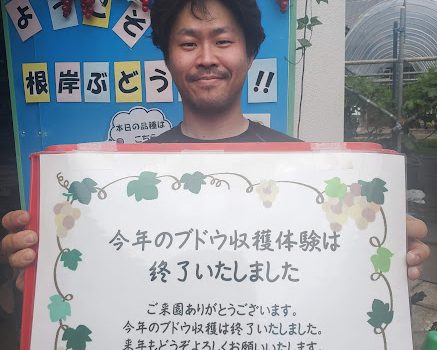 ようこそ
根岸ぶどう!!
本日の品種は
こちら
今年のブドウ収穫体験は
終了いたしました
ご来園ありがとうございます。
今年のブドウ収穫は終了いたしました。
来年もどうぞよろしくお願いいたします。